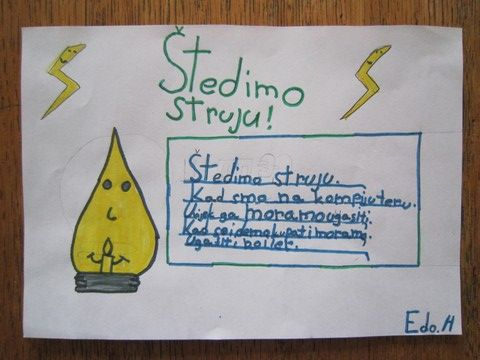 Štedimo
struju!
Štedimo struju.
Kad smo na kompjuteru.
Uvijek ga moramo ugasiti.
Kad se idemo kupati moramo
Ugasiti bojler.
Edo.H